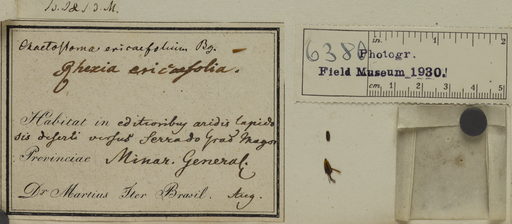 Chaetostoma ericaefolium
Rhexia ericaefolia.
Habitat in editioribus aridis lapido
sis deserti versus Serra do Grao Magor
Provinciae Minar. General.
Dr Martius Iter Brasil. Aug.
6380
Photogr.
Field Museum 1930!
in. 1 2
cm. 1 2 3 4 5